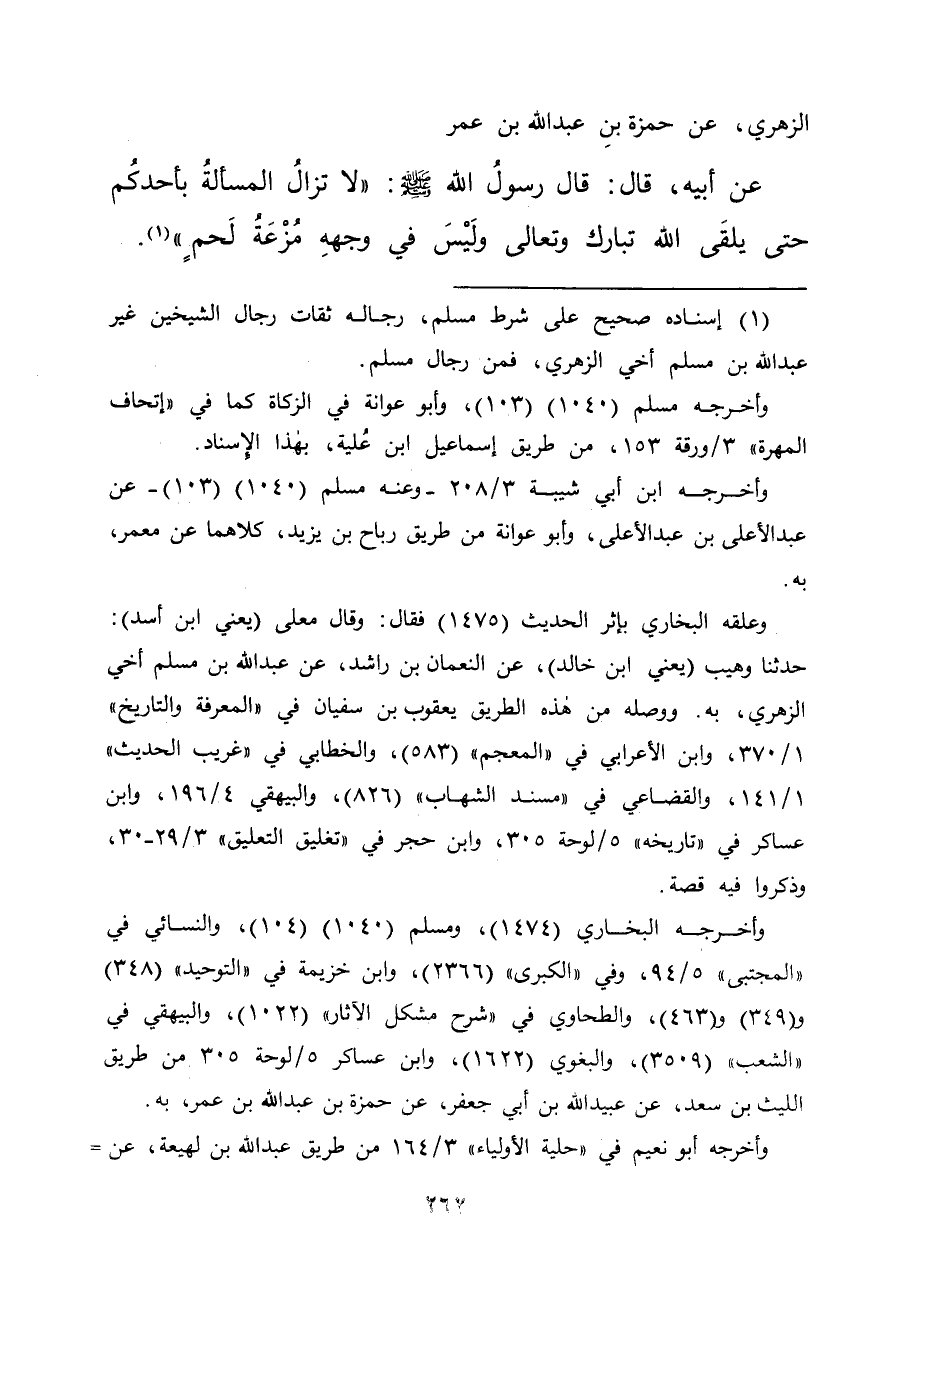 الزهري، عن حمزة بنِ عبدالله بن عمر
عن أبيه، قال: قال رسولُ الله ﷺ: «لا تزالُ المسألةُ بأحدكُم
حتى يلقَى الله تبارك وتعالى ولَيْسَ في وجههِ مُزْعَةُ لَحمٍ»(١).
(١) إسناده صحيح على شرط مسلم، رجاله ثقات رجال الشيخين غير
عبدالله بن مسلم أخي الزهري، فمن رجال مسلم.
وأخرجه مسلم (١٠٤٠) (١٠٣)، وأبو عوانة في الزكاة كما في «إتحاف
المهرة» ٣/ورقة ١٥٣، من طريق إسماعيل ابن عُلية، بهٰذا الإسناد.
وأخرجه ابن أبي شيبة ٢٠٨/٣ -وعنه مسلم (١٠٤٠) (١٠٣)- عن
عبدالأعلى بن عبدالأعلى، وأبو عوانة من طريق رباح بن يزيد، كلاهما عن معمر،
به.
وعلقه البخاري بإثر الحديث (١٤٧٥) فقال: وقال معلى (يعني ابن أسد):
حدثنا وهيب (يعني ابن خالد)، عن النعمان بن راشد، عن عبدالله بن مسلم أخي
الزهري، به. ووصله من هٰذه الطريق يعقوب بن سفيان في «المعرفة والتاريخ»
٣٧٠/١، وابن الأعرابي في «المعجم» (٥٨٣)، والخطابي في «غريب الحديث»
١٤١/١، والقضاعي في «مسند الشهاب» (٨٢٦)، والبيهقي ١٩٦/٤، وابن
عساكر في «تاريخه» ٥/لوحة ٣٠٥، وابن حجر في «تغليق التعليق» ٢٩/٣-٣٠،
وذكروا فيه قصة.
وأخرجه البخاري (١٤٧٤)، ومسلم (١٠٤٠) (١٠٤)، والنسائي في
«المجتبى» ٩٤/٥، وفي «الكبرى» (٢٣٦٦)، وابن خزيمة في «التوحيد» (٣٤٨)
و(٣٤٩) و(٤٦٣)، والطحاوي في «شرح مشكل الآثار» (١٠٢٢)، والبيهقي في
«الشعب» (٣٥٠٩)، والبغوي (١٦٢٢)، وابن عساكر ٥/لوحة ٣٠٥ من طريق
الليث بن سعد، عن عبيدالله بن أبي جعفر، عن حمزة بن عبدالله بن عمر، به.
وأخرجه أبو نعيم في «حلية الأولياء» ١٦٤/٣ من طريق عبدالله بن لهيعة، عن =
٢٦٧